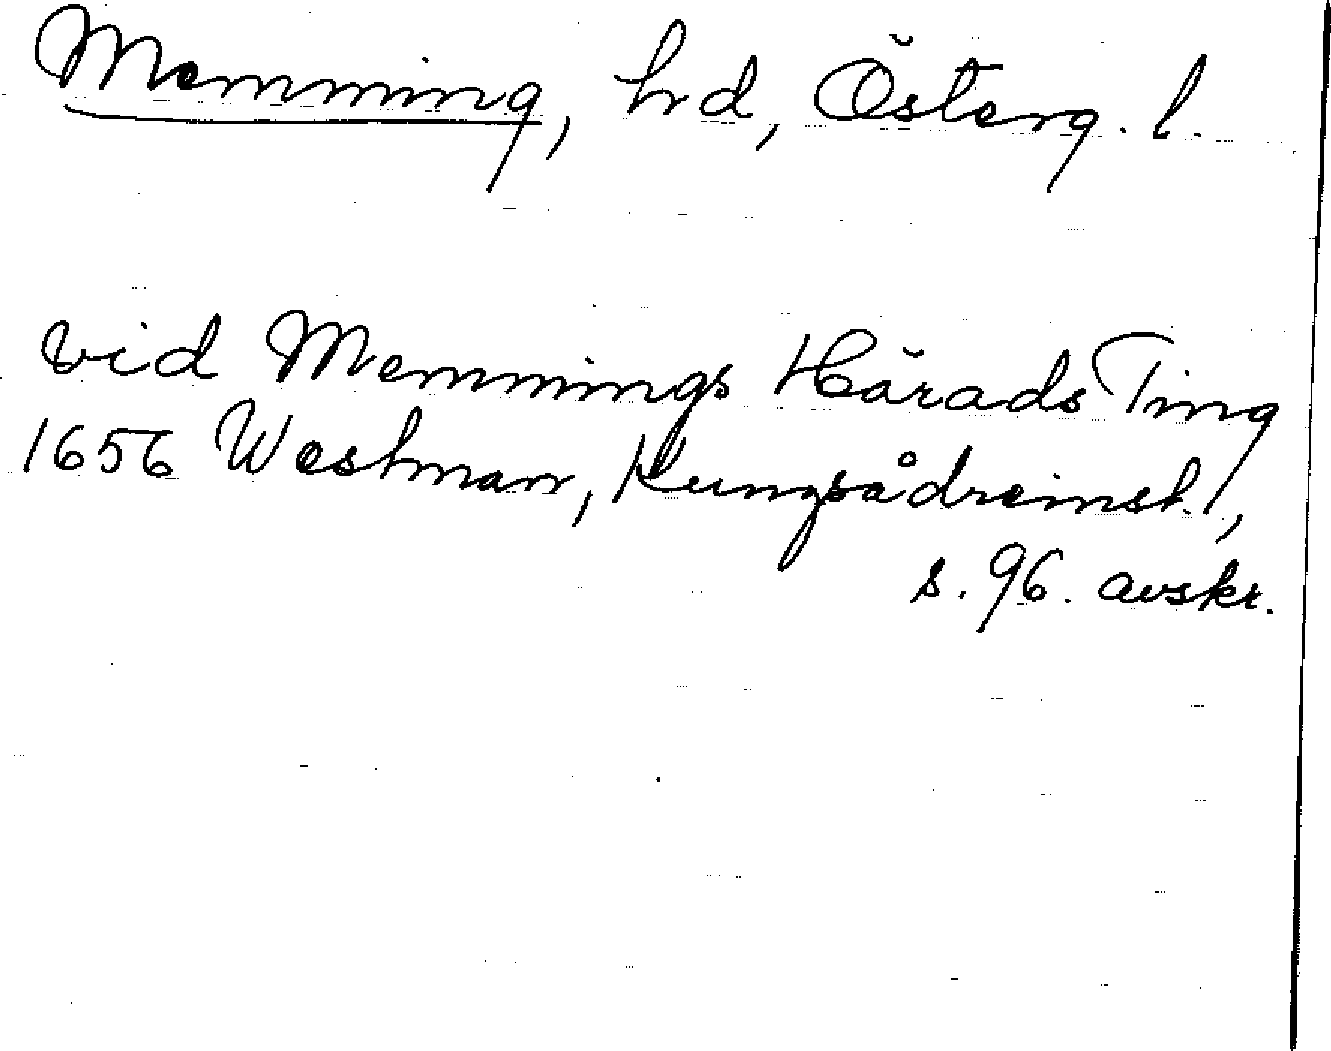 Memming, hd, Österg. l.
vid Memmings Härads Ting
1656 Westman, Kungsådreinst.,
s. 96. avskr.